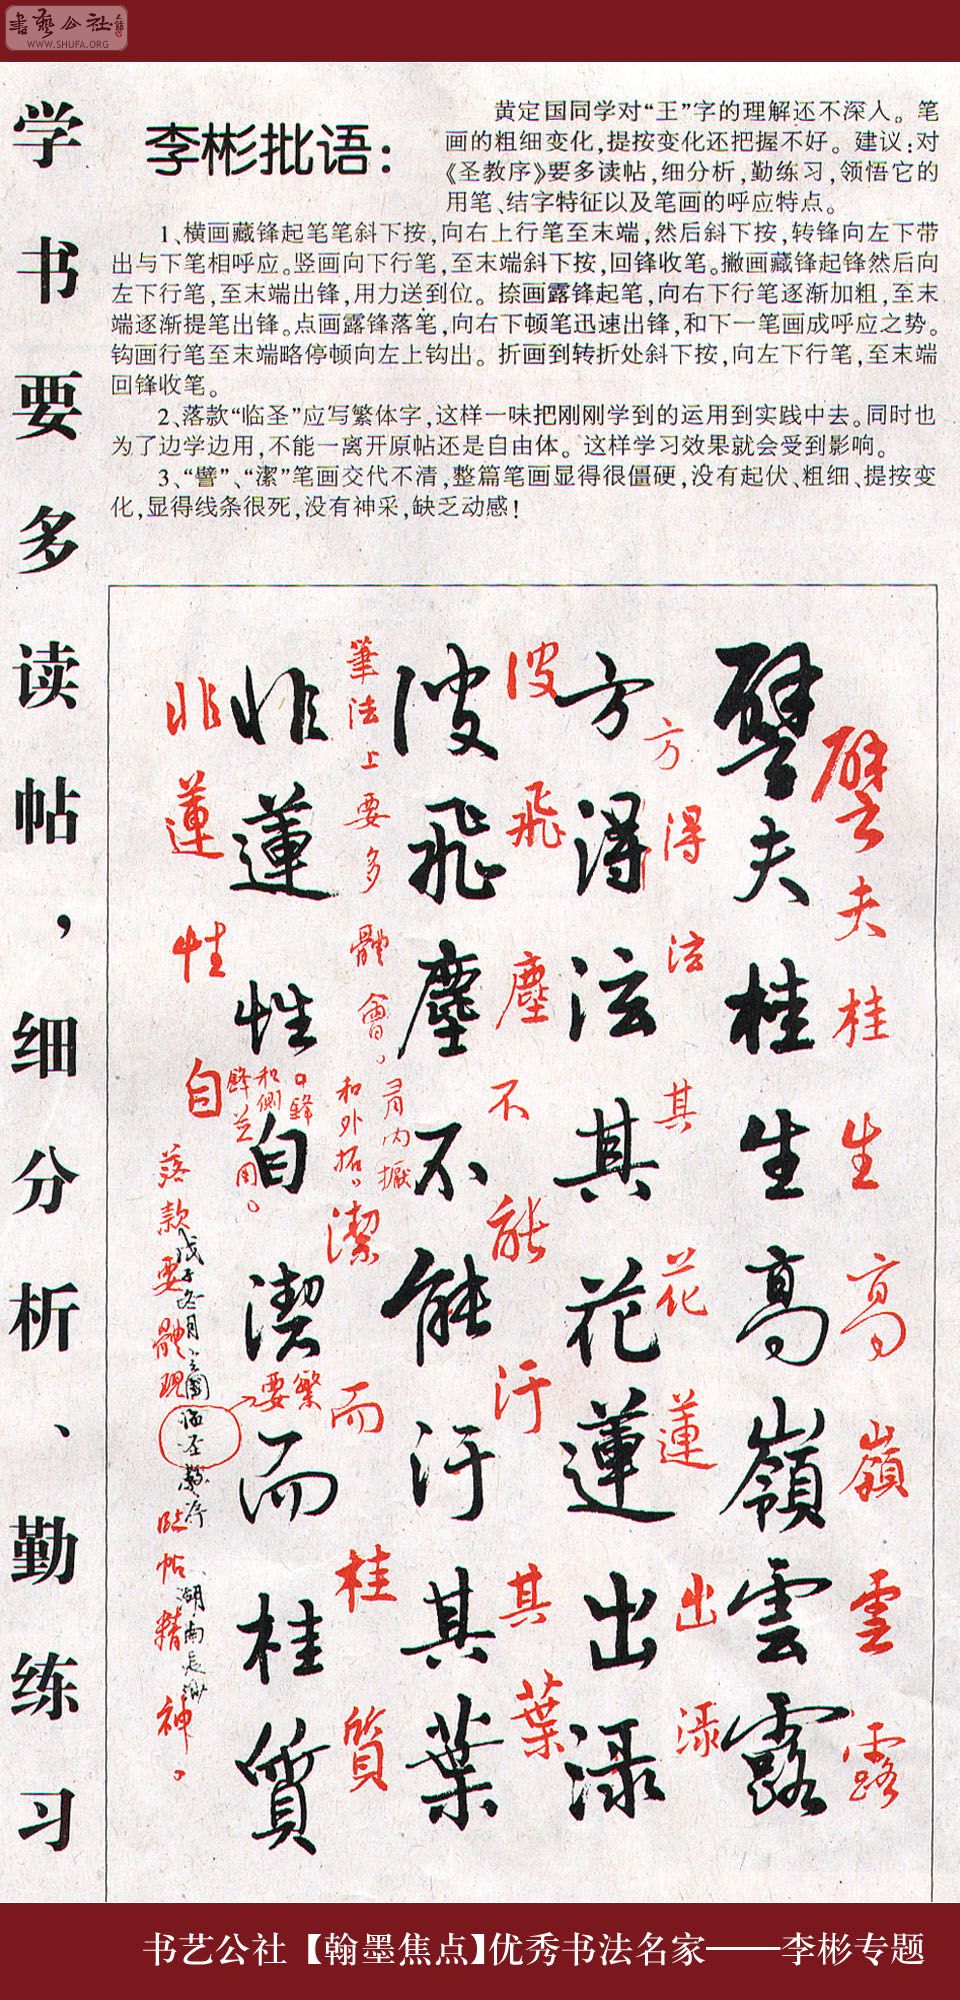 書藝公社
WWW.SHUFA.ORG
学书要多读帖，细分析、勤练习
李彬批语：
黄定国同学对“王”字的理解还不深入。笔
画的粗细变化，提按变化还把握不好。建议：对
《圣教序》要多读帖，细分析，勤练习，领悟它的
用笔、结字特征以及笔画的呼应特点。
1、横画藏锋起笔笔斜下按，向右上行笔至末端，然后斜下按，转锋向左下带
出与下笔相呼应。竖画向下行笔，至末端斜下按，回锋收笔。撇画藏锋起锋然后向
左下行笔，至末端出锋，用力送到位。捺画露锋起笔，向右下行笔逐渐加粗，至末
端逐渐提笔出锋。点画露锋落笔，向右下顿笔迅速出锋，和下一笔画成呼应之势。
钩画行笔至末端略停顿向左上钩出。折画到转折处斜下按，向左下行笔，至末端
回锋收笔。
2、落款“临圣”应写繁体字，这样一味把刚刚学到的运用到实践中去。同时也
为了边学边用，不能一离开原帖还是自由体。这样学习效果就会受到影响。
3、“譬”、“潔”笔画交代不清，整篇笔画显得很僵硬，没有起伏、粗细、提按变
化，显得线条很死，没有神采，缺乏动感！
譬夫桂生高嶺雲露
譬夫桂生高嶺雲露
方得泫其花蓮出渌
方得泫其花蓮出渌
彼飛塵不能汙其葉
彼飛塵不能汙其葉
非蓮性自潔而桂質
非蓮性自潔而桂質
筆法上要多體會。
有内擫
和外拓。
中鋒
和側
鋒並用。
要繁
戊子冬月定國临圣教序
湖南长沙
落款要體現臨帖精神。
书艺公社【翰墨焦点】优秀书法名家——李彬专题